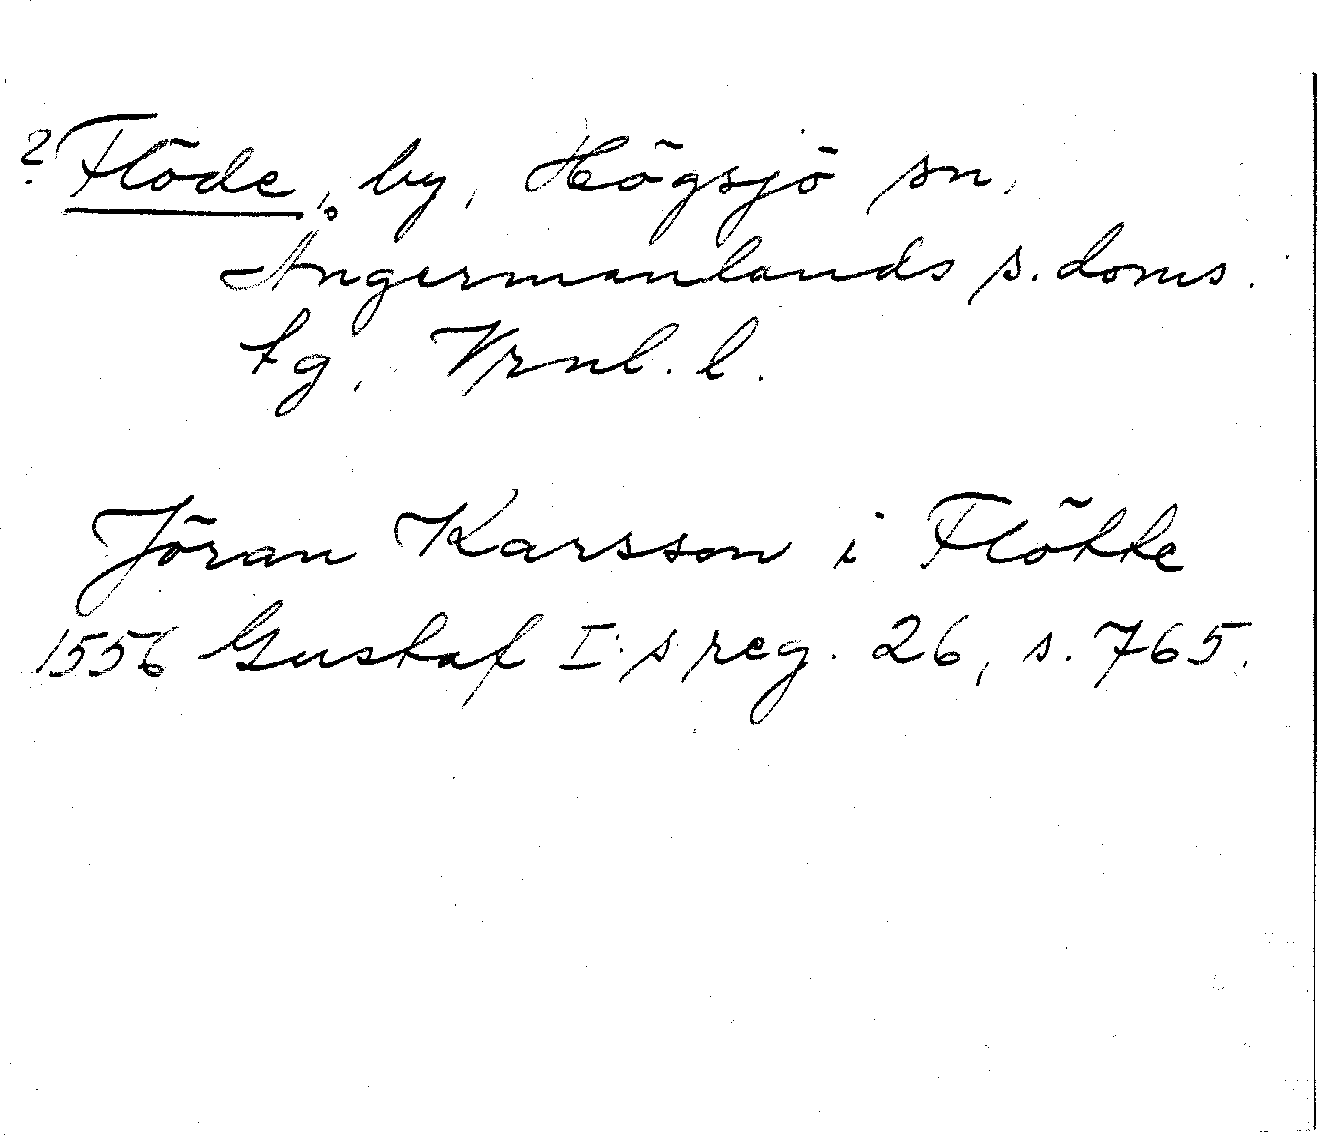 ? Flöde, by, Högsjö sn,
Ångermanlands s. doms.
tg, Vrnl. l.
Jöran Karsson i Flötte
1556 Gustaf I:s reg. 26, s. 765.